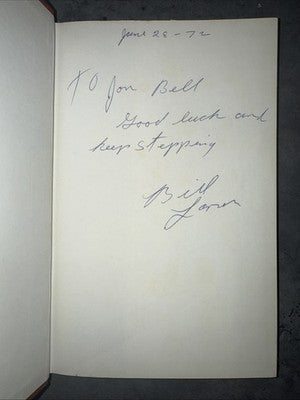 June 28-72
To Jon Bell
Good luck and
keep stepping
Bill